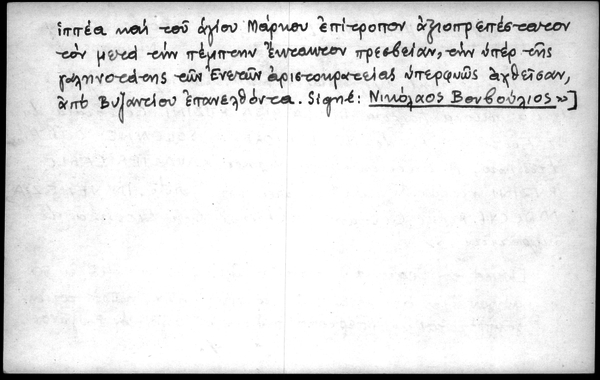 ἱππέα καὶ τοῦ ἁγίου Μάρκου ἐπίτροπον ἀξιοπρεπέστατον
τὸν μετὰ τὴν πέμπτην ἔκτακτον πρεσβείαν, τὴν ὑπὲρ τῆς
γαληνοτάτης τῶν Ἐνετῶν ἀριστοκρατείας ὑπερφυῶς ἀχθεῖσαν,
ἀπὸ Βυζαντίου ἐπανελθόντα. Signé: Νικόλαος Βουβούλιος»]